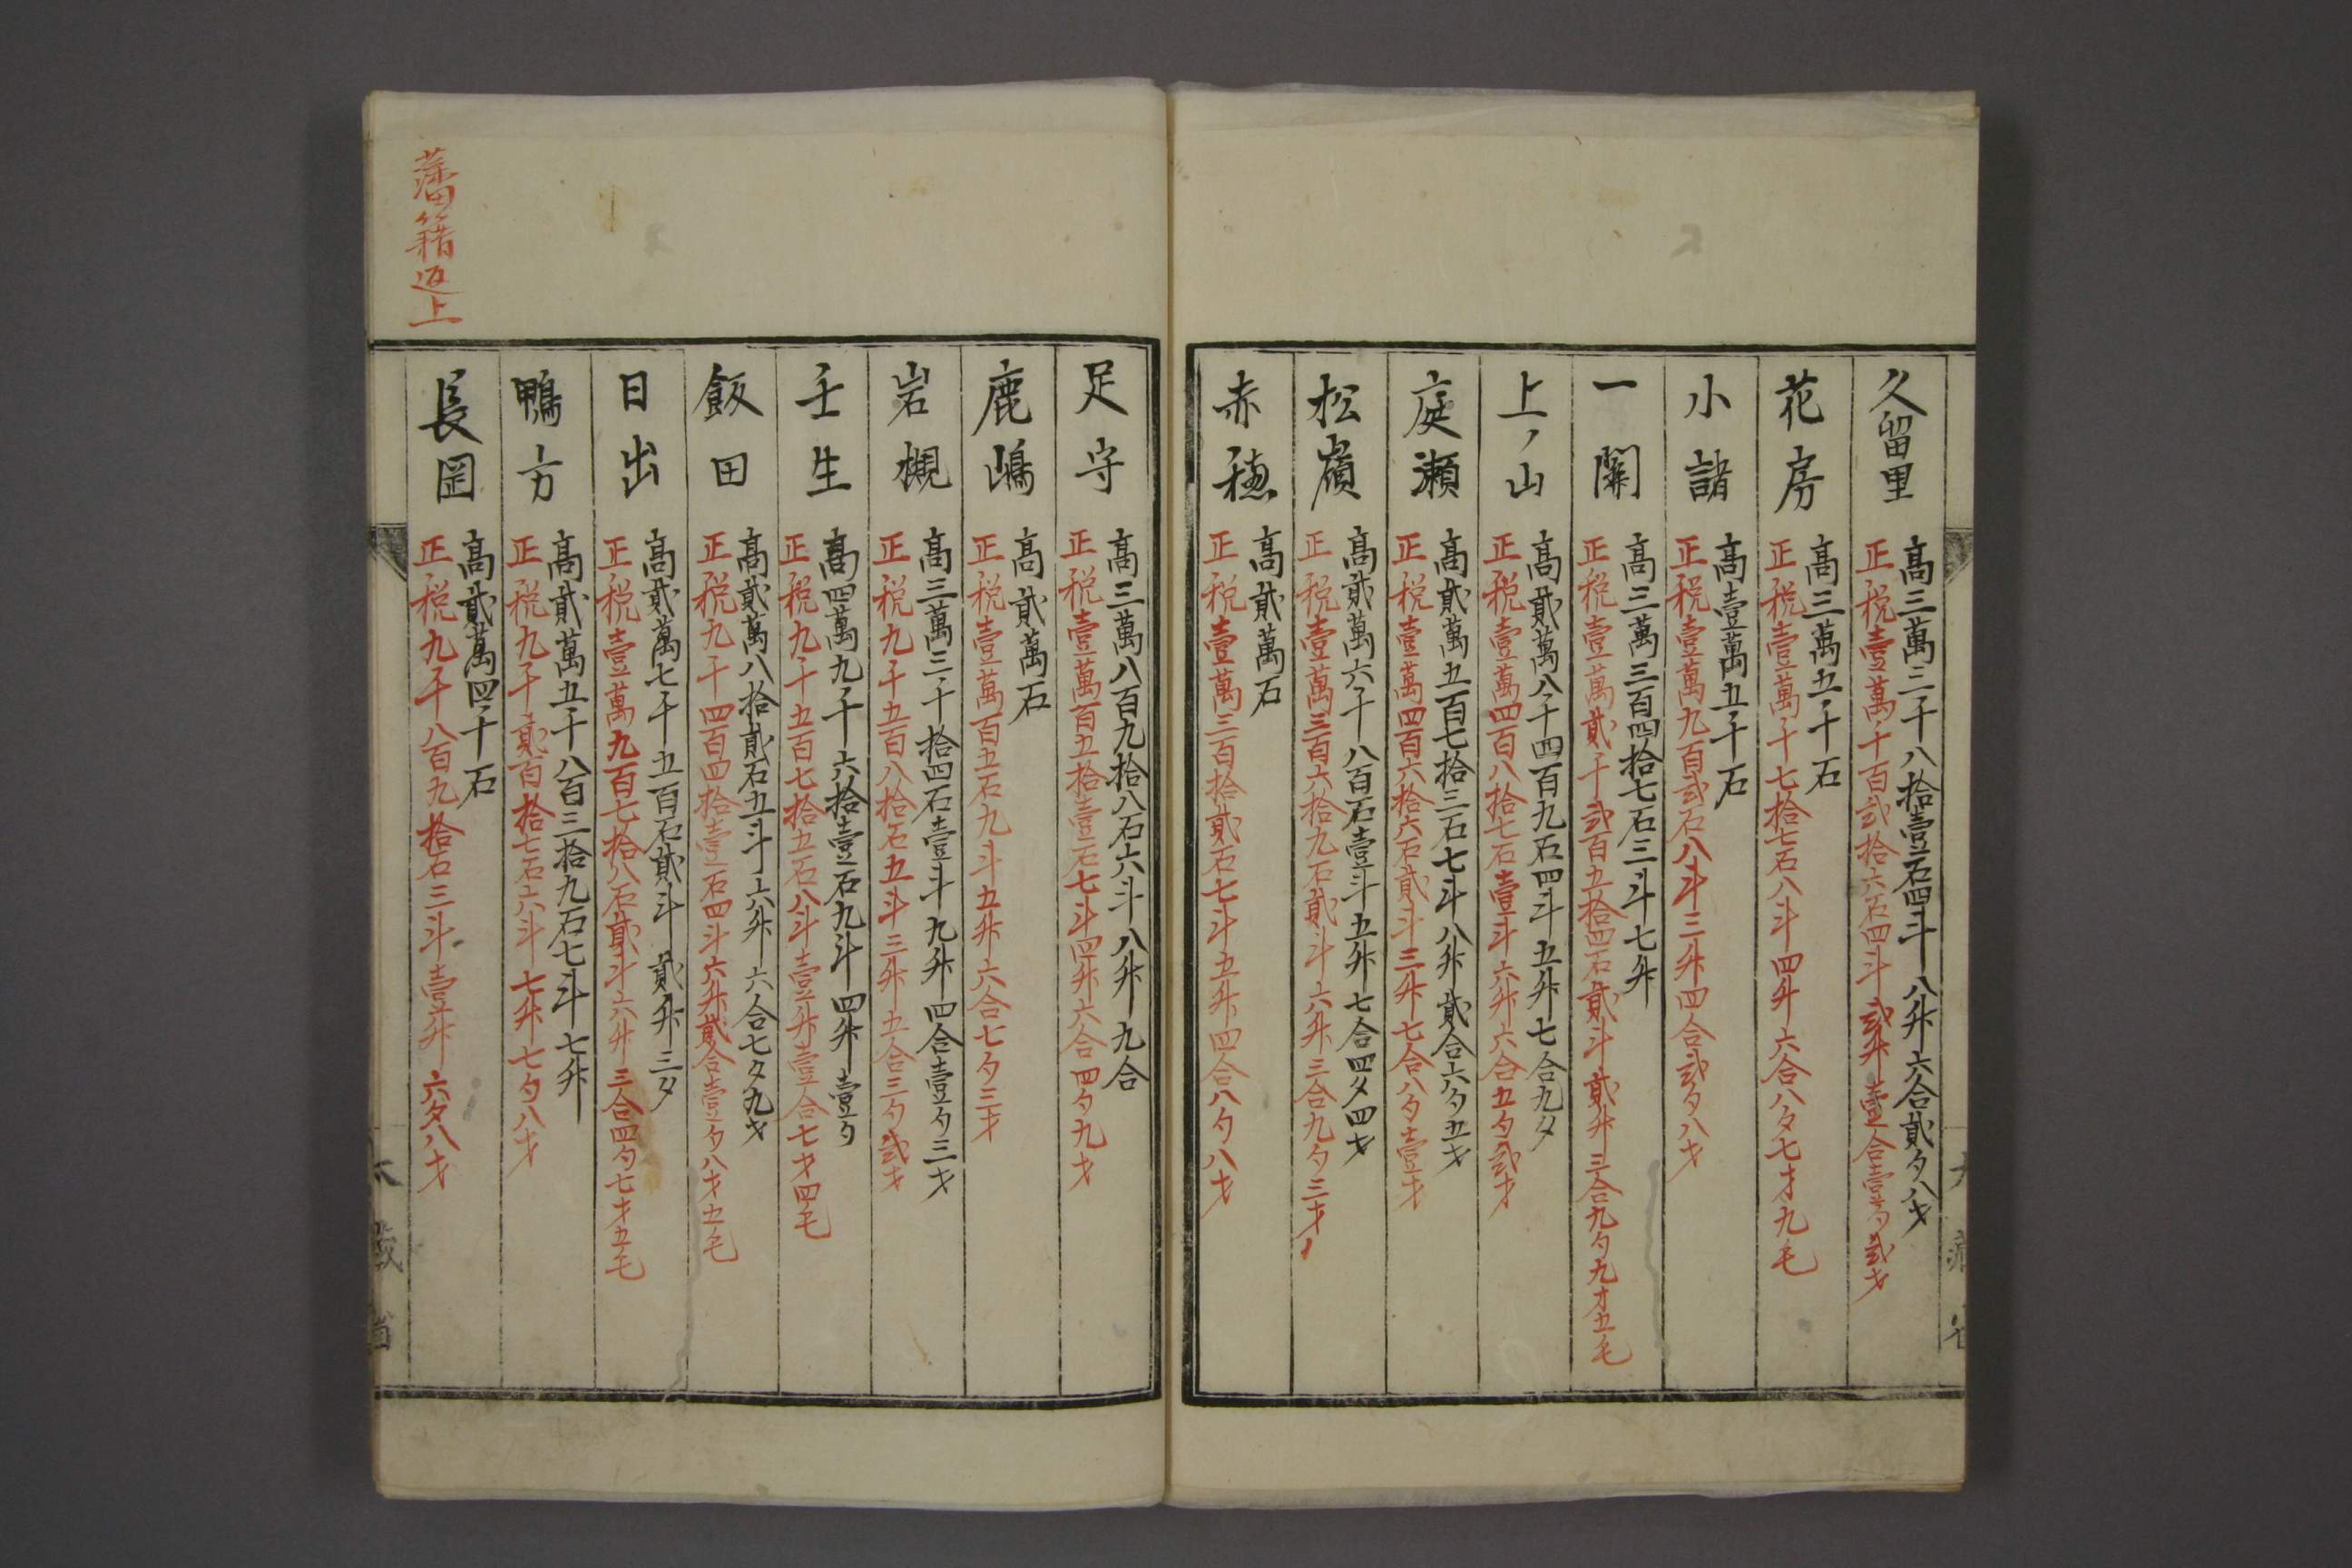 久留里
高三萬三千八拾壹石四斗八升六合貳夕八才
正税壹萬千百弐拾六石四斗弐升壹合壹夕弐才
花房
高三萬五千石
正税壹萬千七拾七石八斗四升六合八夕七才九毛
小諸
高壹萬五千石
正税壹萬九百弐石八斗三升四合弐夕八才
一關
高三萬三百四拾七石三斗七升
正税壹萬貳千弐百五拾四石貳斗貳升三合九夕九才五毛
上ノ山
高貳萬八千四百九石四斗五升七合九夕
正税壹萬四百八拾七石壹斗六升六合五夕弐才
庭瀬
高貳萬五百七拾三石七斗八升貳合六夕五才
正税壹萬四百六拾六石貳斗三升七合八夕壹才
松嶺
高貳萬六千八百石壹斗五升七合四夕四才
正税壹萬三百六拾九石貳斗六升三合九夕三才
赤穂
高貳萬石
正税壹萬三百拾貳石七斗五升四合八夕八才
足守
高三萬八百九拾八石六斗八升九合
正税壹萬百五拾壹石七斗四升六合四夕九才
鹿嶋
高貳萬石
正税壹萬百五石九斗五升六合七夕三才
岩槻
高三萬三千拾四石壹斗九升四合壹夕三才
正税九千五百八拾石五斗三升五合三夕弐才
壬生
高四萬九千六拾壹石九斗四升壹夕
正税九千五百七拾五石八斗壹升壹合七才四毛
飯田
高貳萬八拾貳石五斗六升六合七夕九才
正税九千四百四拾壹石四斗六升貳合壹夕八才五毛
日出
高貳萬七千五百石貳斗貳升三夕
正税壹萬九百七拾八石貳斗六升三合四夕七才五毛
鴨方
高貳萬五千八百三拾九石七斗七升
正税九千貳百拾七石六斗七升七夕八才
藩籍返上
長岡
高貳萬四千石
正税九千八百九拾石三斗壹升六夕八才